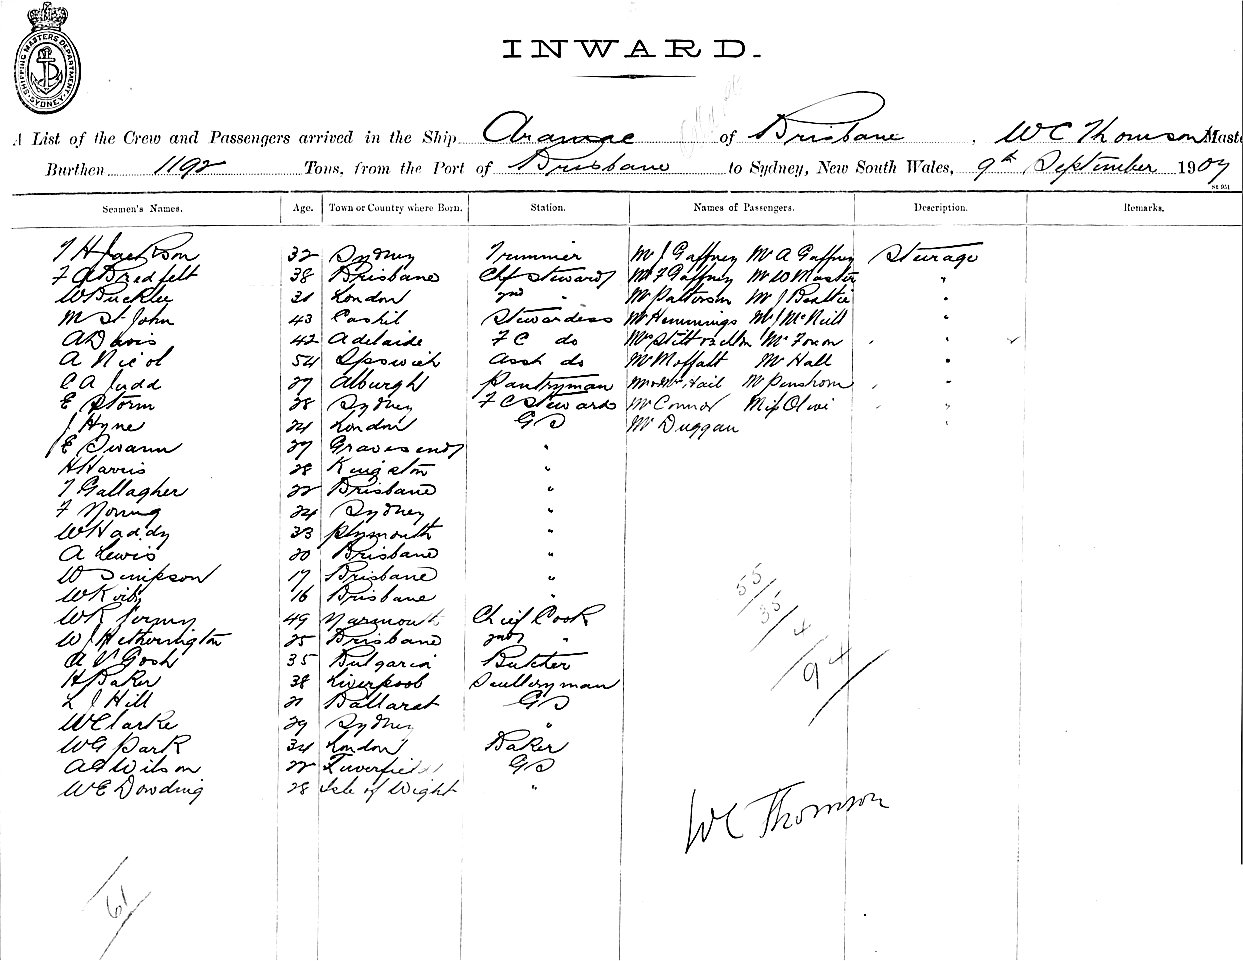 SHIPPING MASTERS DEPARTMENT SYDNEY
INWARD.
A List of the Crew and Passengers arrived in the Ship of Brisbane, W C Thomson Maste
Burthen 1192 Tons, from the Port of Brisbane to Sydney, New South Wales, 9th September 1907
Seamen's Names. Age. Town or Country where Born. Station. Names of Passengers. Description. Remarks.
T H Jackson 32 Sydney Trimmer Mr J Gaffney Mr A Gaffney Steerage
F A Bredfelt 38 Brisbane Chf Steward Mr F Gaffney Mr W Master "
W Buckle 31 London 2nd " Mr Patterson Mr J Beattie "
M St John 43 Cashil Stewardess Mr Hemmings Mr J McNeill "
A Davis 42 Adelaide F C do "
A Nicol 54 Ipswich Asst do Mr Moffatt Mr Hall "
C A Judd 27 Alburgh Pantryman "
E Storm 28 Sydney F C Steward Mr Connor Miss Olive "
J Hyne 24 London G S Mr Duggan "
E Swann 27 Gravesend "
H Harris 28 Kingston "
T Gallagher 22 Brisbane "
F Young 24 Sydney "
W Haddy 33 Plymouth "
A Lewis 20 Brisbane "
W Simpson 17 Brisbane "
W Kirby 16 Brisbane "
W R 49 Yarmouth Chief Cook
W J Hetherington 25 Brisbane 2nd "
A V Gosh 35 Bulgaria Butcher
H Baker 38 Liverpool Sculleryman
L J Hill 21 Ballarat G S
W Clarke 29 Sydney "
W G Park 34 London Baker
A G Wilson 22 G S
W E Dowding 28 Isle of Wight "
55
35
4
94
W C Thomson
61